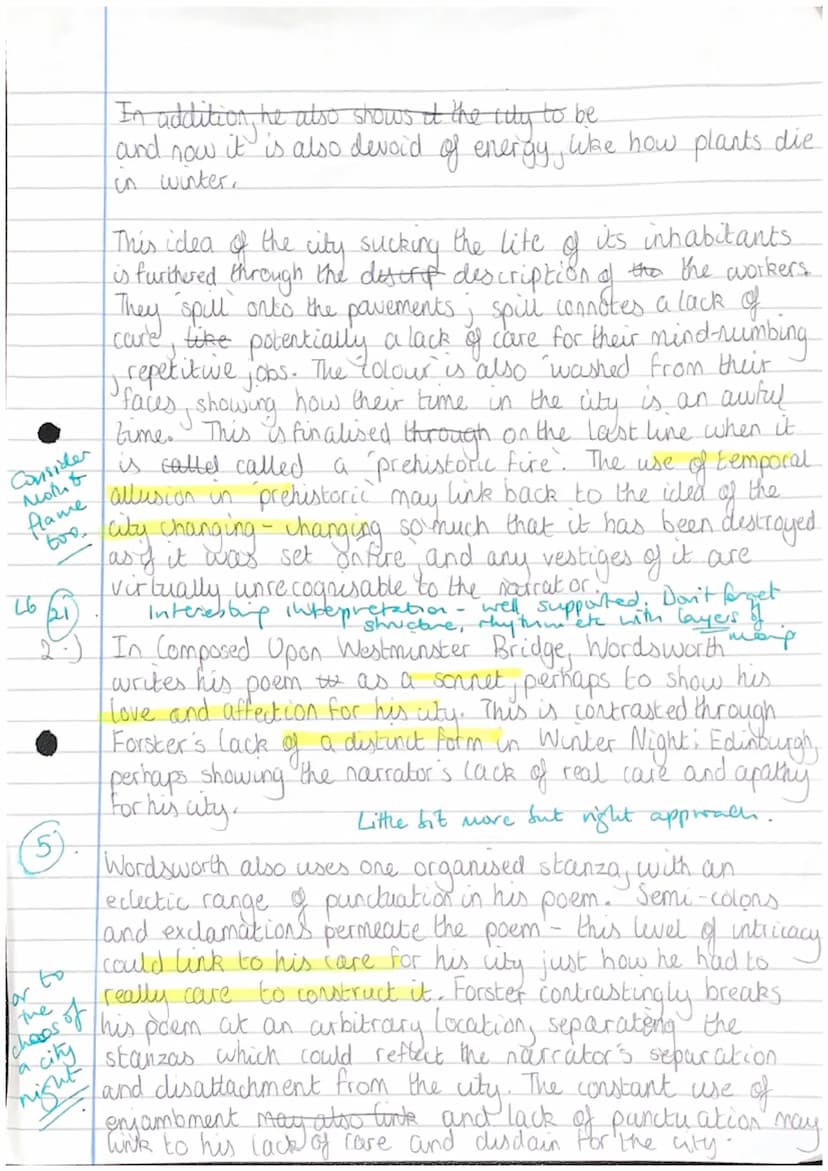 In addition, he also shows it the city to be
and now it is also devoid of energy, like how plants die
in winter.
This idea of the city sucking the life of its inhabitants
is furthered through the descrip description of the the workers.
They 'spill' onto the pavements; spill connotes a lack of
care, like potentially a lack of care for their mind-numbing
, repetitive jobs. The 'colour' is also 'washed' from their
faces, showing how their time in the city is an awful
time. This is finalised through on the last line when it
is called called a 'prehistoric fire'. The use of temporal
Consider
night
flame
too.
allusion in 'prehistoric' may link back to the idea of the
city changing - changing so much that it has been destroyed
as if it was set on fire, and any vestiges of it are
virtually unrecognisable to the narrator.
L6 21
Interesting interpretation - well supported. Don't forget
structure, rhythm etc with layers of
meaning
2.) In Composed Upon Westminster Bridge, Wordsworth
writes his poem as a sonnet, perhaps to show his
love and affection for his city. This is contrasted through
Forster's lack of a distinct form in Winter Night: Edinburgh,
perhaps showing the narrator's lack of real care and apathy
for his city.
Little bit more but right approach.
5
Wordsworth also uses one organised stanza, with an
eclectic range of punctuation in his poem. Semi-colons
and exclamations permeate the poem - this level of intricacy
could link to his care for his city just how he had to
really care to construct it. Forster contrastingly breaks
or to
the
chaos of
a city
night
his poem at an arbitrary location, separateng the
stanzas which could reflect the narrator's separation
and disattachment from the city. The constant use of
enjambment may also link and lack of punctuation may
link to his lack of care and disdain for the city.